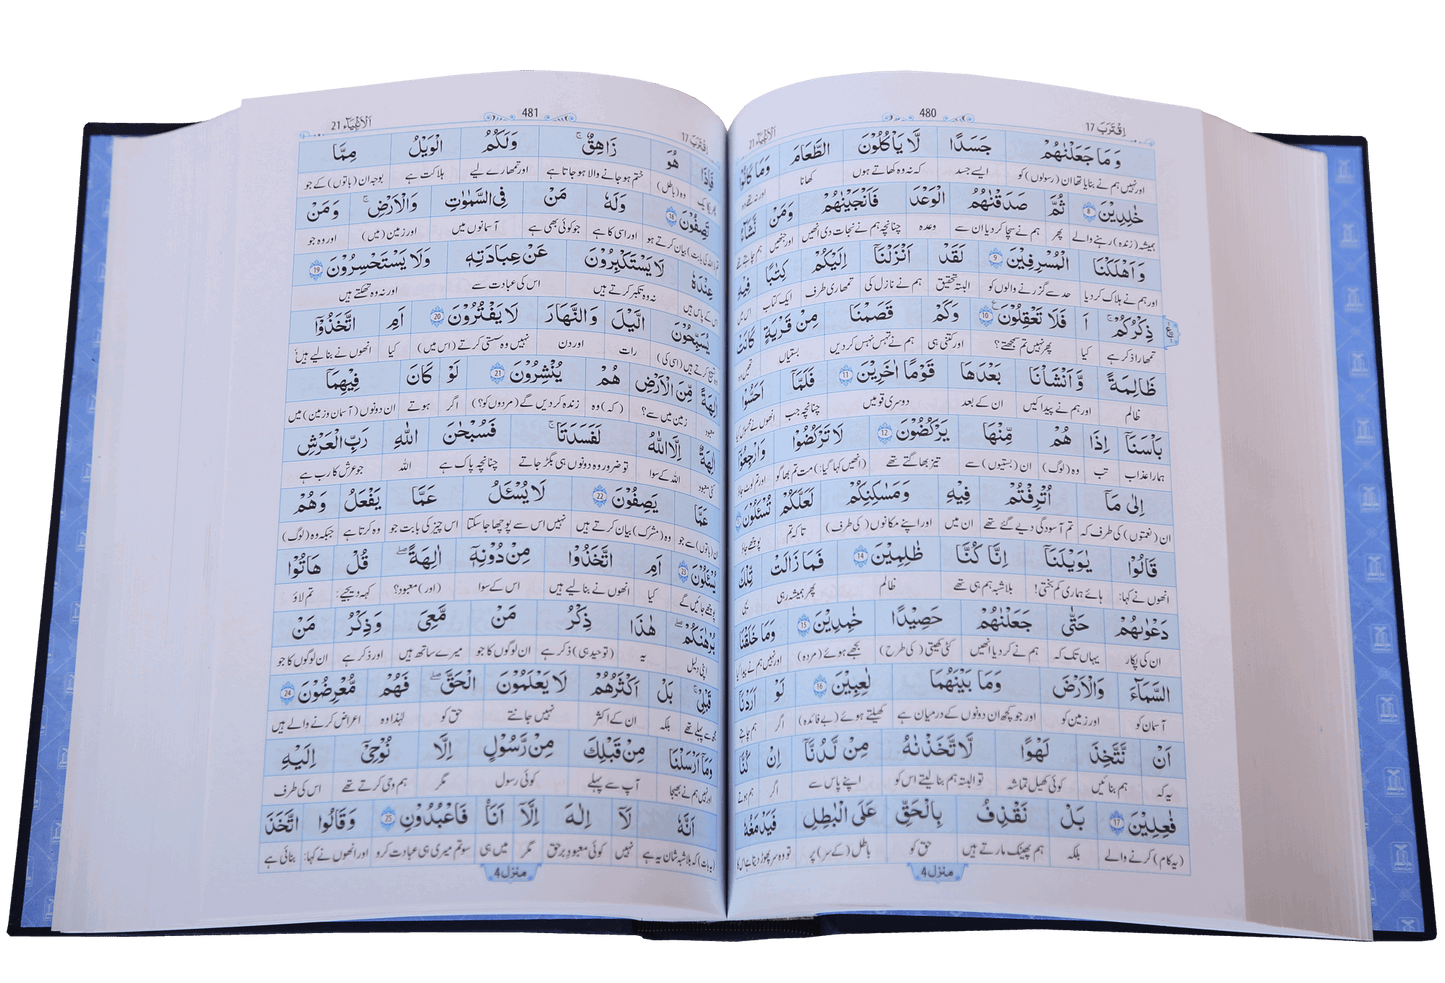 اِقْتَرَبَ 17 480 اَلْاَنْۢبِيَآء 21
وَمَا جَعَلْنٰهُمْ جَسَدًا لَّا يَاْكُلُوْنَ الطَّعَامَ وَمَا كَانُوْا
اور نہیں ہم نے بنایا تھا ان (رسولوں) کو ایسے جسد کہ نہ وہ کھاتے ہوں کھانا اور نہ تھے وہ
خٰلِدِيْنَ 8 ثُمَّ صَدَقْنٰهُمُ الْوَعْدَ فَاَنْجَيْنٰهُمْ وَمَنْ نَّشَآءُ
ہمیشہ (زندہ) رہنے والے پھر ہم نے سچا کر دیا ان سے وعدہ چنانچہ ہم نے نجات دی انھیں اور جنھیں ہم چاہتے تھے
وَاَهْلَكْنَا الْمُسْرِفِيْنَ 9 لَقَدْ اَنْزَلْنَآ اِلَيْكُمْ كِتٰبًا فِيْهِ
اور ہم نے ہلاک کر دیا حد سے گزرنے والوں کو البتہ تحقیق ہم نے نازل کی تمھاری طرف ایک کتاب اس میں
ذِكْرُكُمْ ۚ اَ فَلَا تَعْقِلُوْنَ 10 وَكَمْ قَصَمْنَا مِنْ قَرْيَةٍ كَانَتْ
تمھارا ذکر ہے کیا پھر نہیں تم سمجھتے؟ اور کتنی ہی ہم نے تہس نہس کر دیں بستیاں
ظَالِمَةً وَّاَنْشَاْنَا بَعْدَهَا قَوْمًا اٰخَرِيْنَ 11 فَلَمَّآ اَحَسُّوْا
ظالم اور ہم نے پیدا کیں ان کے بعد دوسری قومیں چنانچہ جب انھوں نے
بَاْسَنَآ اِذَا هُمْ مِّنْهَا يَرْكُضُوْنَ 12 لَا تَرْكُضُوْا وَارْجِعُوْٓا
ہمارا عذاب تب وہ (لوگ) ان (بستیوں) سے تیز بھاگتے تھے (انھیں کہا گیا:) مت تم بھاگو اور تم لوٹ جاؤ
اِلٰى مَآ اُتْرِفْتُمْ فِيْهِ وَمَسٰكِنِكُمْ لَعَلَّكُمْ تُسْـَٔلُوْنَ
ان (نعمتوں) کی طرف کہ تم آسودگی دیے گئے تھے ان میں اور اپنے مکانوں (کی طرف) تاکہ تم پوچھے جاؤ
قَالُوْا يٰوَيْلَنَآ اِنَّا كُنَّا ظٰلِمِيْنَ 14 فَمَا زَالَتْ تِّلْكَ
انھوں نے کہا: ہائے ہماری کم بختی! بلاشبہ ہم ہی تھے ظالم پھر ہمیشہ رہی یہی
دَعْوٰىهُمْ حَتّٰى جَعَلْنٰهُمْ حَصِيْدًا خٰمِدِيْنَ 15 وَمَا خَلَقْنَا
ان کی پکار یہاں تک کہ ہم نے کر دیا انھیں کٹی کھیتی (کی طرح) بجھے ہوئے (مردہ) اور نہیں ہم نے پیدا کیا
السَّمَآءَ وَالْاَرْضَ وَمَا بَيْنَهُمَا لٰعِبِيْنَ 16 لَوْ اَرَدْنَآ
آسمان کو اور زمین کو اور جو کچھ ان دونوں کے درمیان ہے کھیلتے ہوئے (بے فائدہ) اگر ہم چاہتے
اَنْ نَّتَّخِذَ لَهْوًا لَّاتَّخَذْنٰهُ مِنْ لَّدُنَّآ اِنْ كُنَّا
یہ کہ ہم بنائیں کوئی کھیل تماشہ تو البتہ ہم بنا لیتے اس کو اپنے پاس سے اگر ہم ہوتے
فٰعِلِيْنَ 17 بَلْ نَقْذِفُ بِالْحَقِّ عَلَى الْبَاطِلِ فَيَدْمَغُهٗ
(یہ کام) کرنے والے بلکہ ہم پھینک مارتے ہیں حق کو باطل (کے سر) پر تو وہ سر پھوڑ دیتا ہے اس کا
منزل 4
اِقْتَرَبَ 17 481 اَلْاَنْۢبِيَآء 21
فَاِذَا هُوَ زَاهِقٌ ۚ وَلَكُمُ الْوَيْلُ مِمَّا
وہ (باطل) ختم ہو جانے والا ہو جاتا ہے اور تمھارے لیے ہلاکت ہے بوجہ ان (باتوں) کے جو
تَصِفُوْنَ 18 وَلَهٗ مَنْ فِى السَّمٰوٰتِ وَالْاَرْضِ ۚ وَمَنْ
بیان کرتے ہو اور اسی کا ہے جو کوئی بھی ہے آسمانوں میں اور زمین (میں) اور وہ جو
عِنْدَهٗ لَا يَسْتَكْبِرُوْنَ عَنْ عِبَادَتِهٖ وَلَا يَسْتَحْسِرُوْنَ 19
اس کے پاس ہیں نہ وہ تکبر کرتے ہیں اس کی عبادت سے اور نہ وہ تھکتے ہیں
يُسَبِّحُوْنَ الَّيْلَ وَالنَّهَارَ لَا يَفْتُرُوْنَ 20 اَمِ اتَّخَذُوْٓا
تسبیح کرتے ہیں (اسی کی) رات اور دن نہیں وہ سستی کرتے (اس میں) کیا انھوں نے بنا لیے ہیں
اٰلِهَةً مِّنَ الْاَرْضِ هُمْ يُنْشِرُوْنَ 21 لَوْ كَانَ فِيْهِمَآ
معبود زمین میں سے؟ (کہ) وہ زندہ کر دیں گے (مردوں کو؟) اگر ہوتے ان دونوں (آسمان و زمین) میں
اٰلِهَةٌ اِلَّا اللّٰهُ لَفَسَدَتَا ۚ فَسُبْحٰنَ اللّٰهِ رَبِّ الْعَرْشِ
کئی معبود اللہ کے سوا تو ضرور وہ دونوں ہی بگڑ جاتے چنانچہ پاک ہے اللہ جو عرش کا رب ہے
عَمَّا يَصِفُوْنَ 22 لَا يُسْـَٔلُ عَمَّا يَفْعَلُ وَهُمْ
ان (باتوں) سے جو وہ (مشرک) بیان کرتے ہیں نہیں اس سے پوچھا جا سکتا اس چیز کی بابت جو وہ کرتا ہے جبکہ وہ (لوگ)
يُسْـَٔلُوْنَ 23 اَمِ اتَّخَذُوْا مِنْ دُوْنِهٖٓ اٰلِهَةً ؕ قُلْ هَاتُوْا
پوچھے جائیں گے کیا انھوں نے بنا لیے ہیں اس کے سوا (اور) معبود؟ کہہ دیجیے: تم لاؤ
بُرْهَانَكُمْ ۚ هٰذَا ذِكْرُ مَنْ مَّعِىَ وَذِكْرُ مَنْ
اپنی دلیل یہ (توحید ہی) ذکر ہے ان لوگوں کا جو میرے ساتھ ہیں اور ذکر ہے ان لوگوں کا جو
قَبْلِىْ ؕ بَلْ اَكْثَرُهُمْ لَا يَعْلَمُوْنَ الْحَقَّ فَهُمْ مُّعْرِضُوْنَ 24
مجھ سے پہلے تھے بلکہ ان کے اکثر نہیں جانتے حق کو لہٰذا وہ اعراض کرنے والے ہیں
وَمَآ اَرْسَلْنَا مِنْ قَبْلِكَ مِنْ رَّسُوْلٍ اِلَّا نُوْحِىْٓ اِلَيْهِ
اور نہیں ہم نے بھیجا آپ سے پہلے کوئی رسول مگر ہم وحی کرتے تھے اس کی طرف
اَنَّهٗ لَآ اِلٰهَ اِلَّآ اَنَا فَاعْبُدُوْنِ 25 وَقَالُوا اتَّخَذَ
کہ بلاشبہ شان یہ ہے نہیں کوئی معبود برحق مگر میں ہی سو تم میری ہی عبادت کرو اور انھوں نے کہا: بنائی ہے
منزل 4